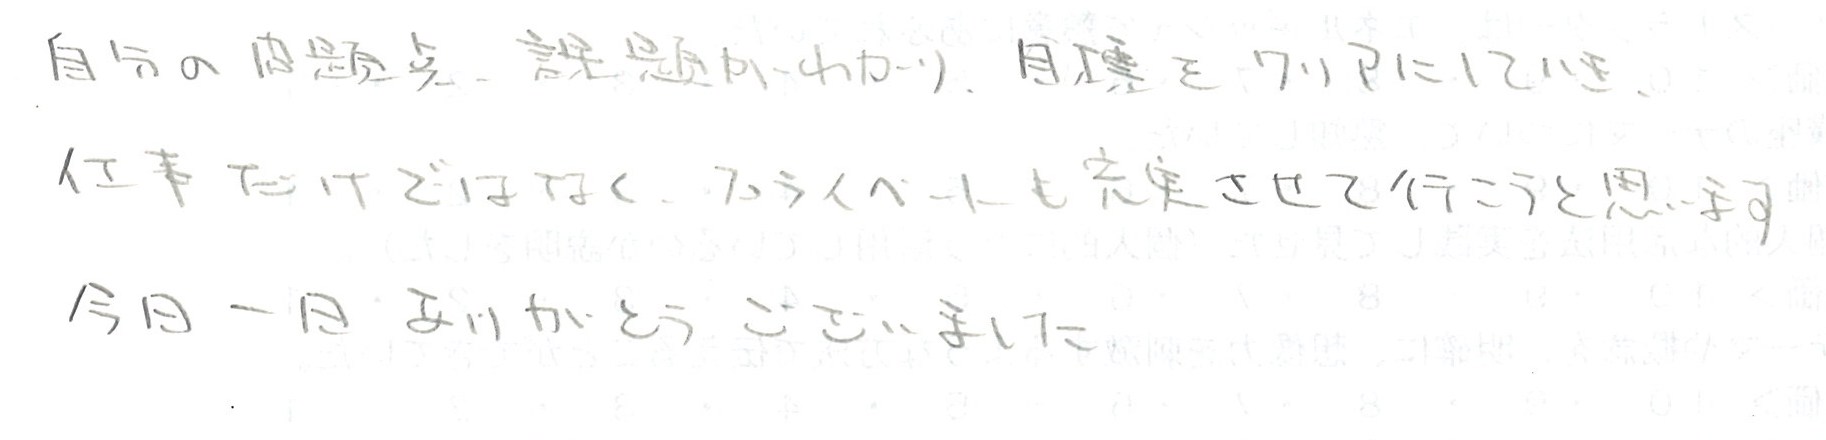 自分の問題点、課題がわかり、目標をクリアにしていき、
仕事だけではなく、プライベートも充実させて行こうと思います
今日一日ありがとうございました